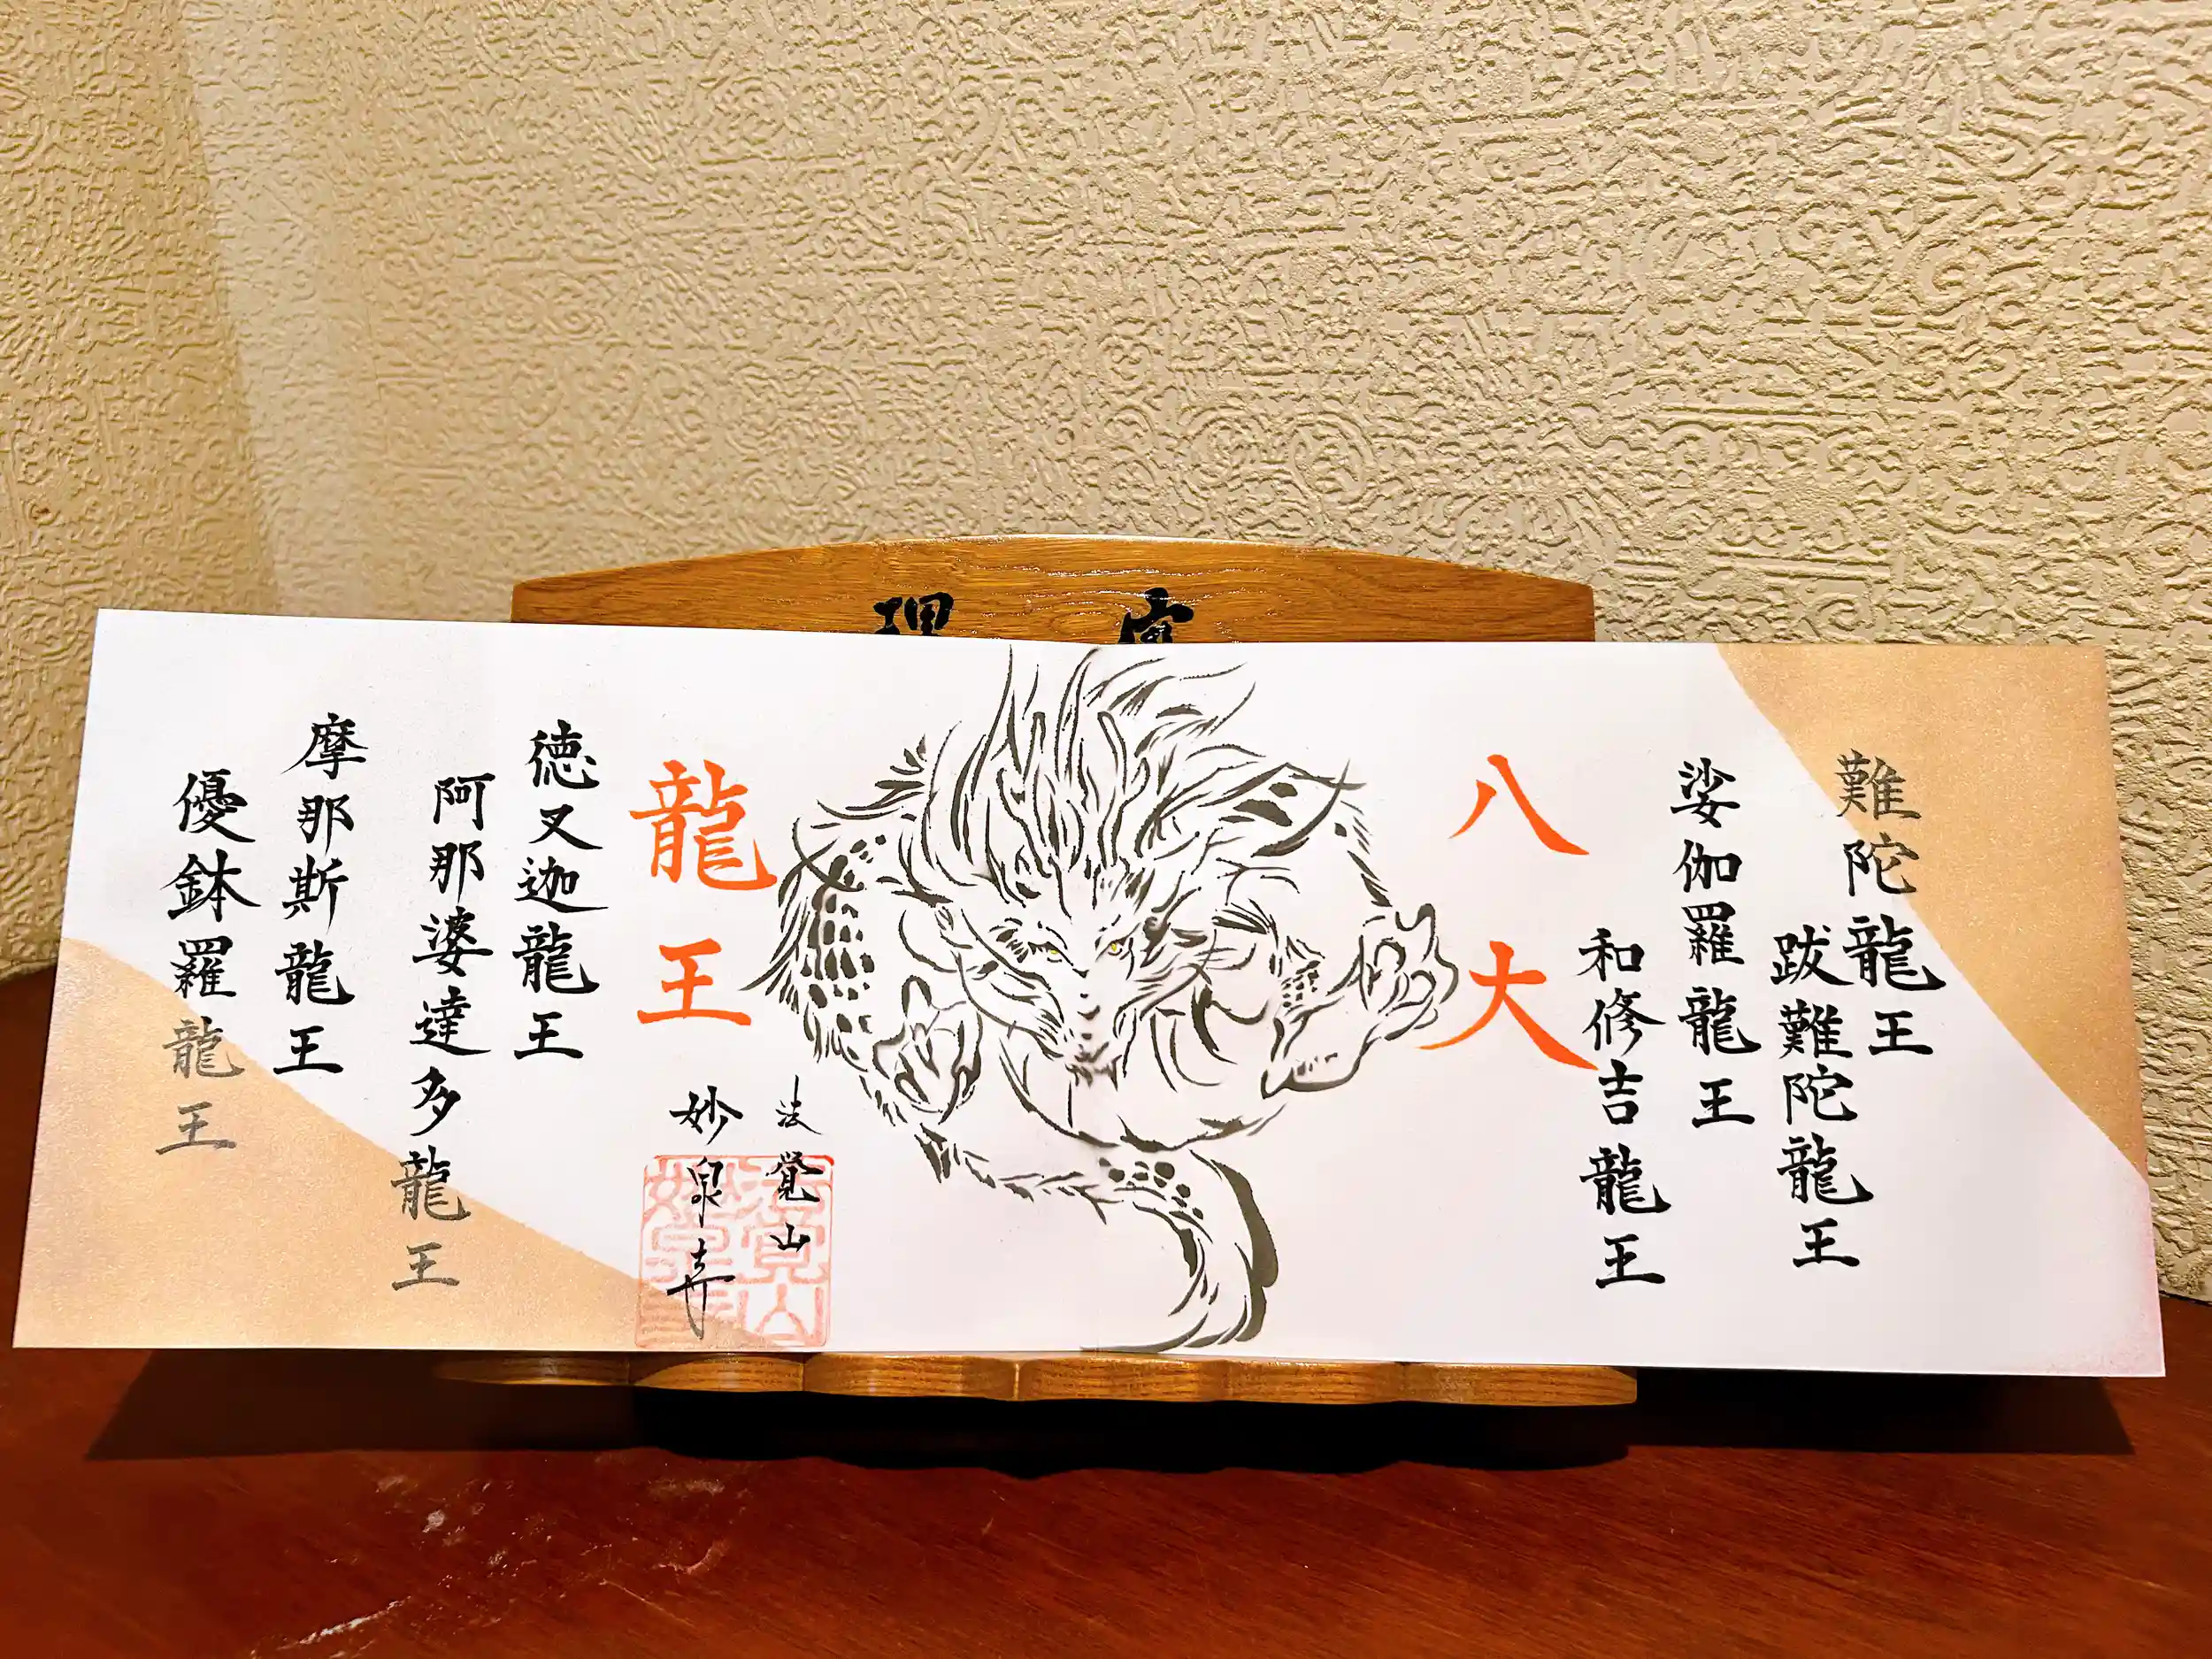 難陀龍王
跋難陀龍王
娑伽羅龍王
和修吉龍王
八大
龍王
法覚山
妙泉寺
徳叉迦龍王
阿那婆達多龍王
摩那斯龍王
優鉢羅龍王